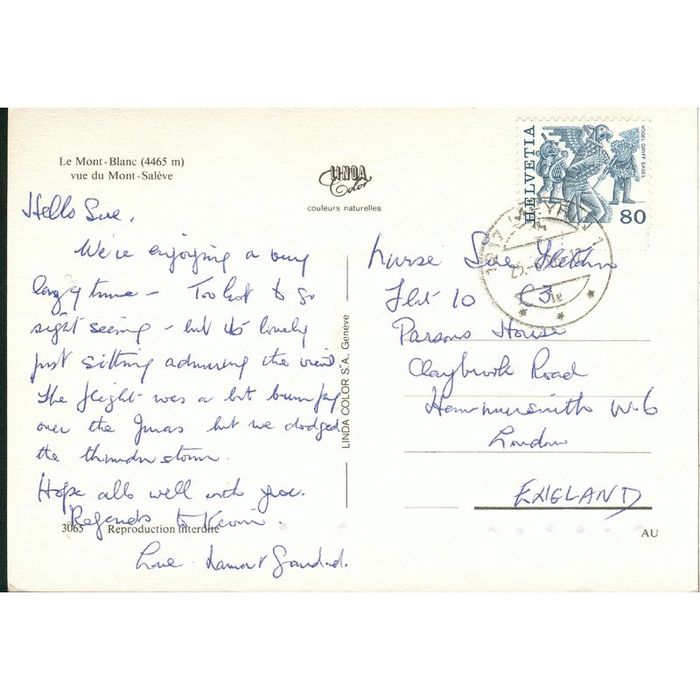 Le Mont-Blanc (4465 m)
vue du Mont-Salève
LINDA
Color
couleurs naturelles
HELVETIA
VOGEL GRYFF BASEL
80
Hello Sue.
We're enjoying a very
lazy time - Too hot to go
sight seeing - but its lovely
just sitting admiring the view
The flight was a bit bumpy
over the Juras but we dodged
the thunder storm.
Hope alls well with you.
Regards to Kevin.
Love
LINDA COLOR S.A., Geneve
Nurse Sue
Flat 10 C3
Parsons House
Claybrook Road
Hammersmith W.6
London
ENGLAND
3065 Reproduction interdite
AU